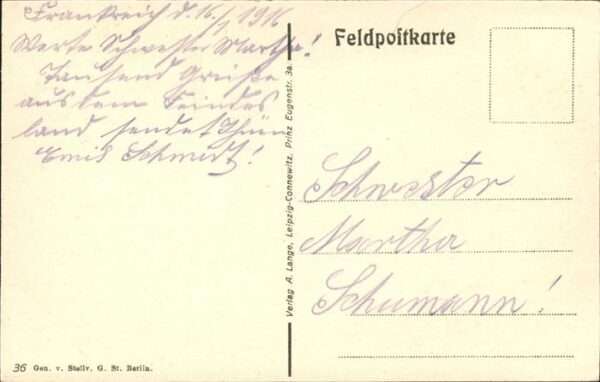 Frankreich d. 16./1 1916
Werte Schwester Martha!
Tausend Grüße
aus dem Feindes
land sendet Ihnen
Emil Schmidt!
Feldpostkarte
Verlag A. Lange, Leipzig-Connewitz, Prinz Eugenstr. 3a.
Schwester
Martha
Schumann!
36 Gen. v. Stellv. G. St. Berlin.